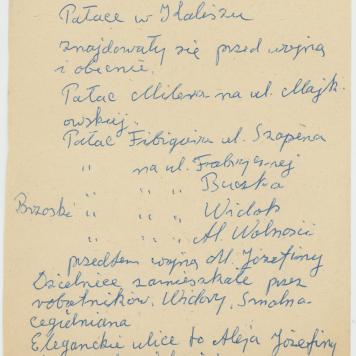 Pałace w Kaliszu
znajdowały się przed wojną
i obecnie.
Pałac Milera na ul. Majk
owskiej.
Pałac Fibigiera ul. Szopena
" na ul. Fabrycznej
" " " Buczka
Brzoski " " " Widok
" " " Al. Wolności
przedtem wojną Al. Józefiny
Dzielnice zamieszkałe przez
robotników, Widory, Smolna
cegielniana
Eleganckie ulice to Aleja Józefiny